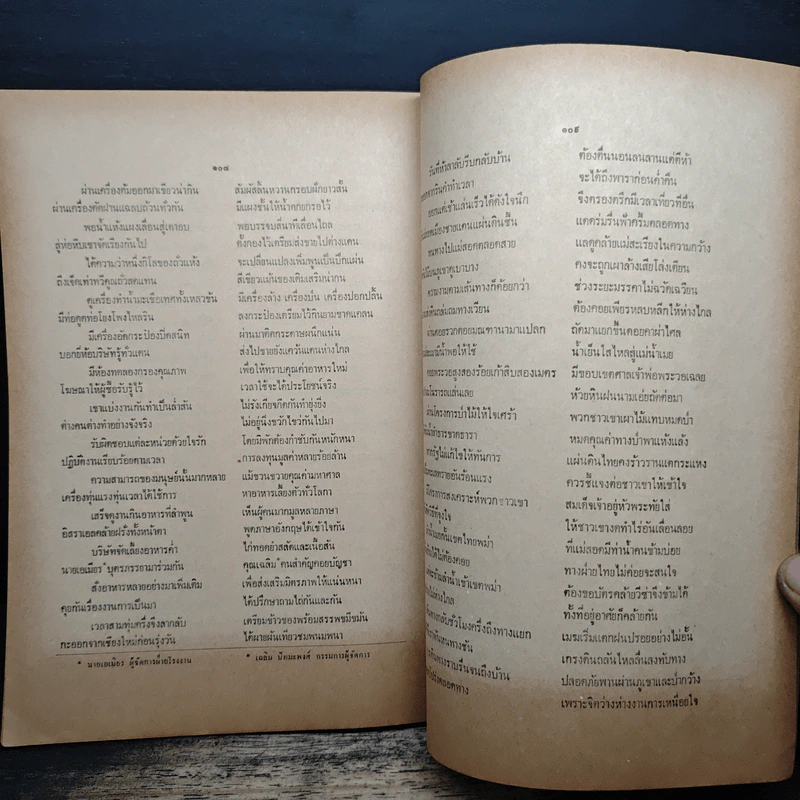 ๑๐๘
ผ่านเครื่องต้มออกมาเขียวน่ากิน สัมผัสลิ้นหวานกรอบฝักยาวสั้น
ผ่านเครื่องคัดฝานแฉลบถ้วนทั่วกัน มีแผงชั้นให้น้ำตกยกรอไว้
พอน้ำแห้งแผงเลื่อนสู่เตาอบ พอบรรจบลื่นที่เลื่อนไถล
สู่ห้อหีบเขาจัดเรียงกันไป ตั้งกองไว้เตรียมส่งขายไปต่างแดน
ได้ความว่าหนึ่งกิโลของถั่วแห้ง จะเปลี่ยนแปลงเพิ่มพูนเป็นปึกแผ่น
ถึงเจ็ดเท่าทวีคูณถั่วสดแทน สีเขียวแม้นของเดิมเสริมน่ากิน
ดูเครื่องทำน้ำมะเขือเทศทั้งเหลวข้น มีเครื่องล้าง เครื่องปั่น เครื่องปอกปลิ้น
มีท่อดูดท่อโยงโพงไหลริน ลงกระป๋องเตรียมไว้กินยามขาดแคลน
มีเครื่องอัดกระป๋องปิดสนิท ผ่านบาติดกระดาษผนึกแน่น
บอกยี่ห้อบริษัทรู้ทั่วแดน ส่งไปขายยังแคว้นแดนห่างไกล
มีห้องทดลองกรองคุณภาพ เพื่อให้ทราบคุณค่าอาหารใหม่
โฆษณาให้ผู้ซื้อรับรู้ไว้ เวลาใช้จะได้ประโยชน์จริง
เขาแบ่งงานกันทำเป็นล่ำสัน ไม่รังเกียจกีดกันทำยุ่งยิ่ง
ต่างคนต่างทำอย่างจังจริง ไม่อยู่นิ่งขวักไขว่กันไปมา
รับผิดชอบแต่ละหน่วยด้วยใจรัก โดยมิพักต้องกำชับกันหนักหนา
ปฏิบัติงานเรียบร้อยตามเวลา การลงทุนมูลค่าหลายร้อยล้าน
ความสามารถของมนุษย์นั้นมากหลาย แม้ขวนขวายคุณค่ามหาศาล
เครื่องทุ่นแรงทุ่นเวลาได้ใช้การ หาอาหารเลี้ยงตัวทั่วโลกา
เสร็จดูงานกินอาหารที่ลำพูน เห็นผู้คนมากมูลหลายภาษา
อิสราเอลคล้ายฝรั่งทั้งหน้าตา พูดภาษาอังกฤษได้เข้าใจกัน
บริษัทจัดเลี้ยงอาหารค่ำ ไก่ทอดยำสลัดและเนื้อสัน
นายเอเมียร* บุตรภรรยามาร่วมกัน คุณเฉลิม* คนสำคัญคอยบัญชา
สั่งอาหารหลายอย่างมาเพิ่มเติม เพื่อส่งเสริมมิตรภาพให้แน่นหนา
คุยกันเรื่องงานการเป็นมา ได้ปรึกษาถามไถ่กันและกัน
เวลาสามทุ่มครึ่งจึงลากลับ เตรียมข้าวของพร้อมสรรพขมีขมัน
กะออกจากเชียงใหม่ก่อนรุ่งวัน ได้ผายผันเที่ยวชมพนมพนา
* นายเอเมียร ผู้จัดการฝ่ายโรงงาน * เฉลิม ปัทมะพงศ์ กรรมการผู้จัดการ
๑๐๙
รีบกลับบ้าน ต้องตื่นนอนลนลานแต่ตีห้า
จะได้ถึงพาราก่อนค่ำคืน
ออกแต่เช้าแล่นเร็วได้ดังใจนึก จึงตรองตรึกมีเวลาเที่ยวที่อื่น
ชายแดนแผ่นดินชื้น แดดร่มรื่นฟ้าครึ้มตลอดทาง
ทางไปแม่สอดตลอดสาย แลดูคล้ายแม่สะเรียงในความกว้าง
ภูเขาดูเบาบาง คงจะถูกเผาล้างเสียโล่งเตียน
ตามเส้นทางก็ค้อยกว่า ช่วงระยะมรรคาไม่ฉวัดเฉวียน
ถมทางเวียน ต้องคอยเพียรหลบหลีกให้ห่างไกล
มณฑานามาแปลก ถัดมาแยกขึ้นดอยคาผ่าไศล
น้ำพอให้ใช้ น้ำเย็นใสไหลสู่แม่น้ำเมย
สูงสองร้อยเก้าสิบสองเมตร มีขอบเขตศาลเจ้าพ่อพระวอเฉลย
แล่นเลย ห้วยหินฝนนามเอ่ยถัดต่อมา
โครงการป่าไม้ให้ใจเศร้า พวกชาวเขาเผาไม้แทบหมดป่า
หมดคุณค่าทางป่าพาแห้งแล้ง
รัฐไม่แก้ไขให้ทันการ แผ่นดินไทยคงร้าวรานแตกระแหง
อันร้อนแรง ควรชี้แจงต่อชาวเขาให้เข้าใจ
โครงการสงเคราะห์พวกชาวเขา สมเด็จเจ้าอยู่หัวพระทัยใส่
ให้ชาวเขางดทำไร่อันเลื่อนลอย
เขตไทยพม่า ที่แม่สอดมีท่าน้ำคนข้ามบ่อย
ไม่ต้องคอย ทางฝ่ายไทยไม่ค่อยจะสนใจ
ลำน้ำเข้าเขตพม่า ต้องขอบัตรคล้ายวีซ่าจึงข้ามได้
ทั้งที่อยู่อาศัยก็คล้ายกัน
ชั่วโมงครึ่งถึงทางแยก เมฆเริ่มแตกฝนปรอยอย่างไม่อั้น
เกรงดินถล่มไหลลื่นลงทับทาง
ราบรื่นจนถึงบ้าน ปลอดภัยพานผ่านภูเขาและป่ากว้าง
ตลอดทาง เพราะจิตว่างห่างงานการเหนื่อยใจ